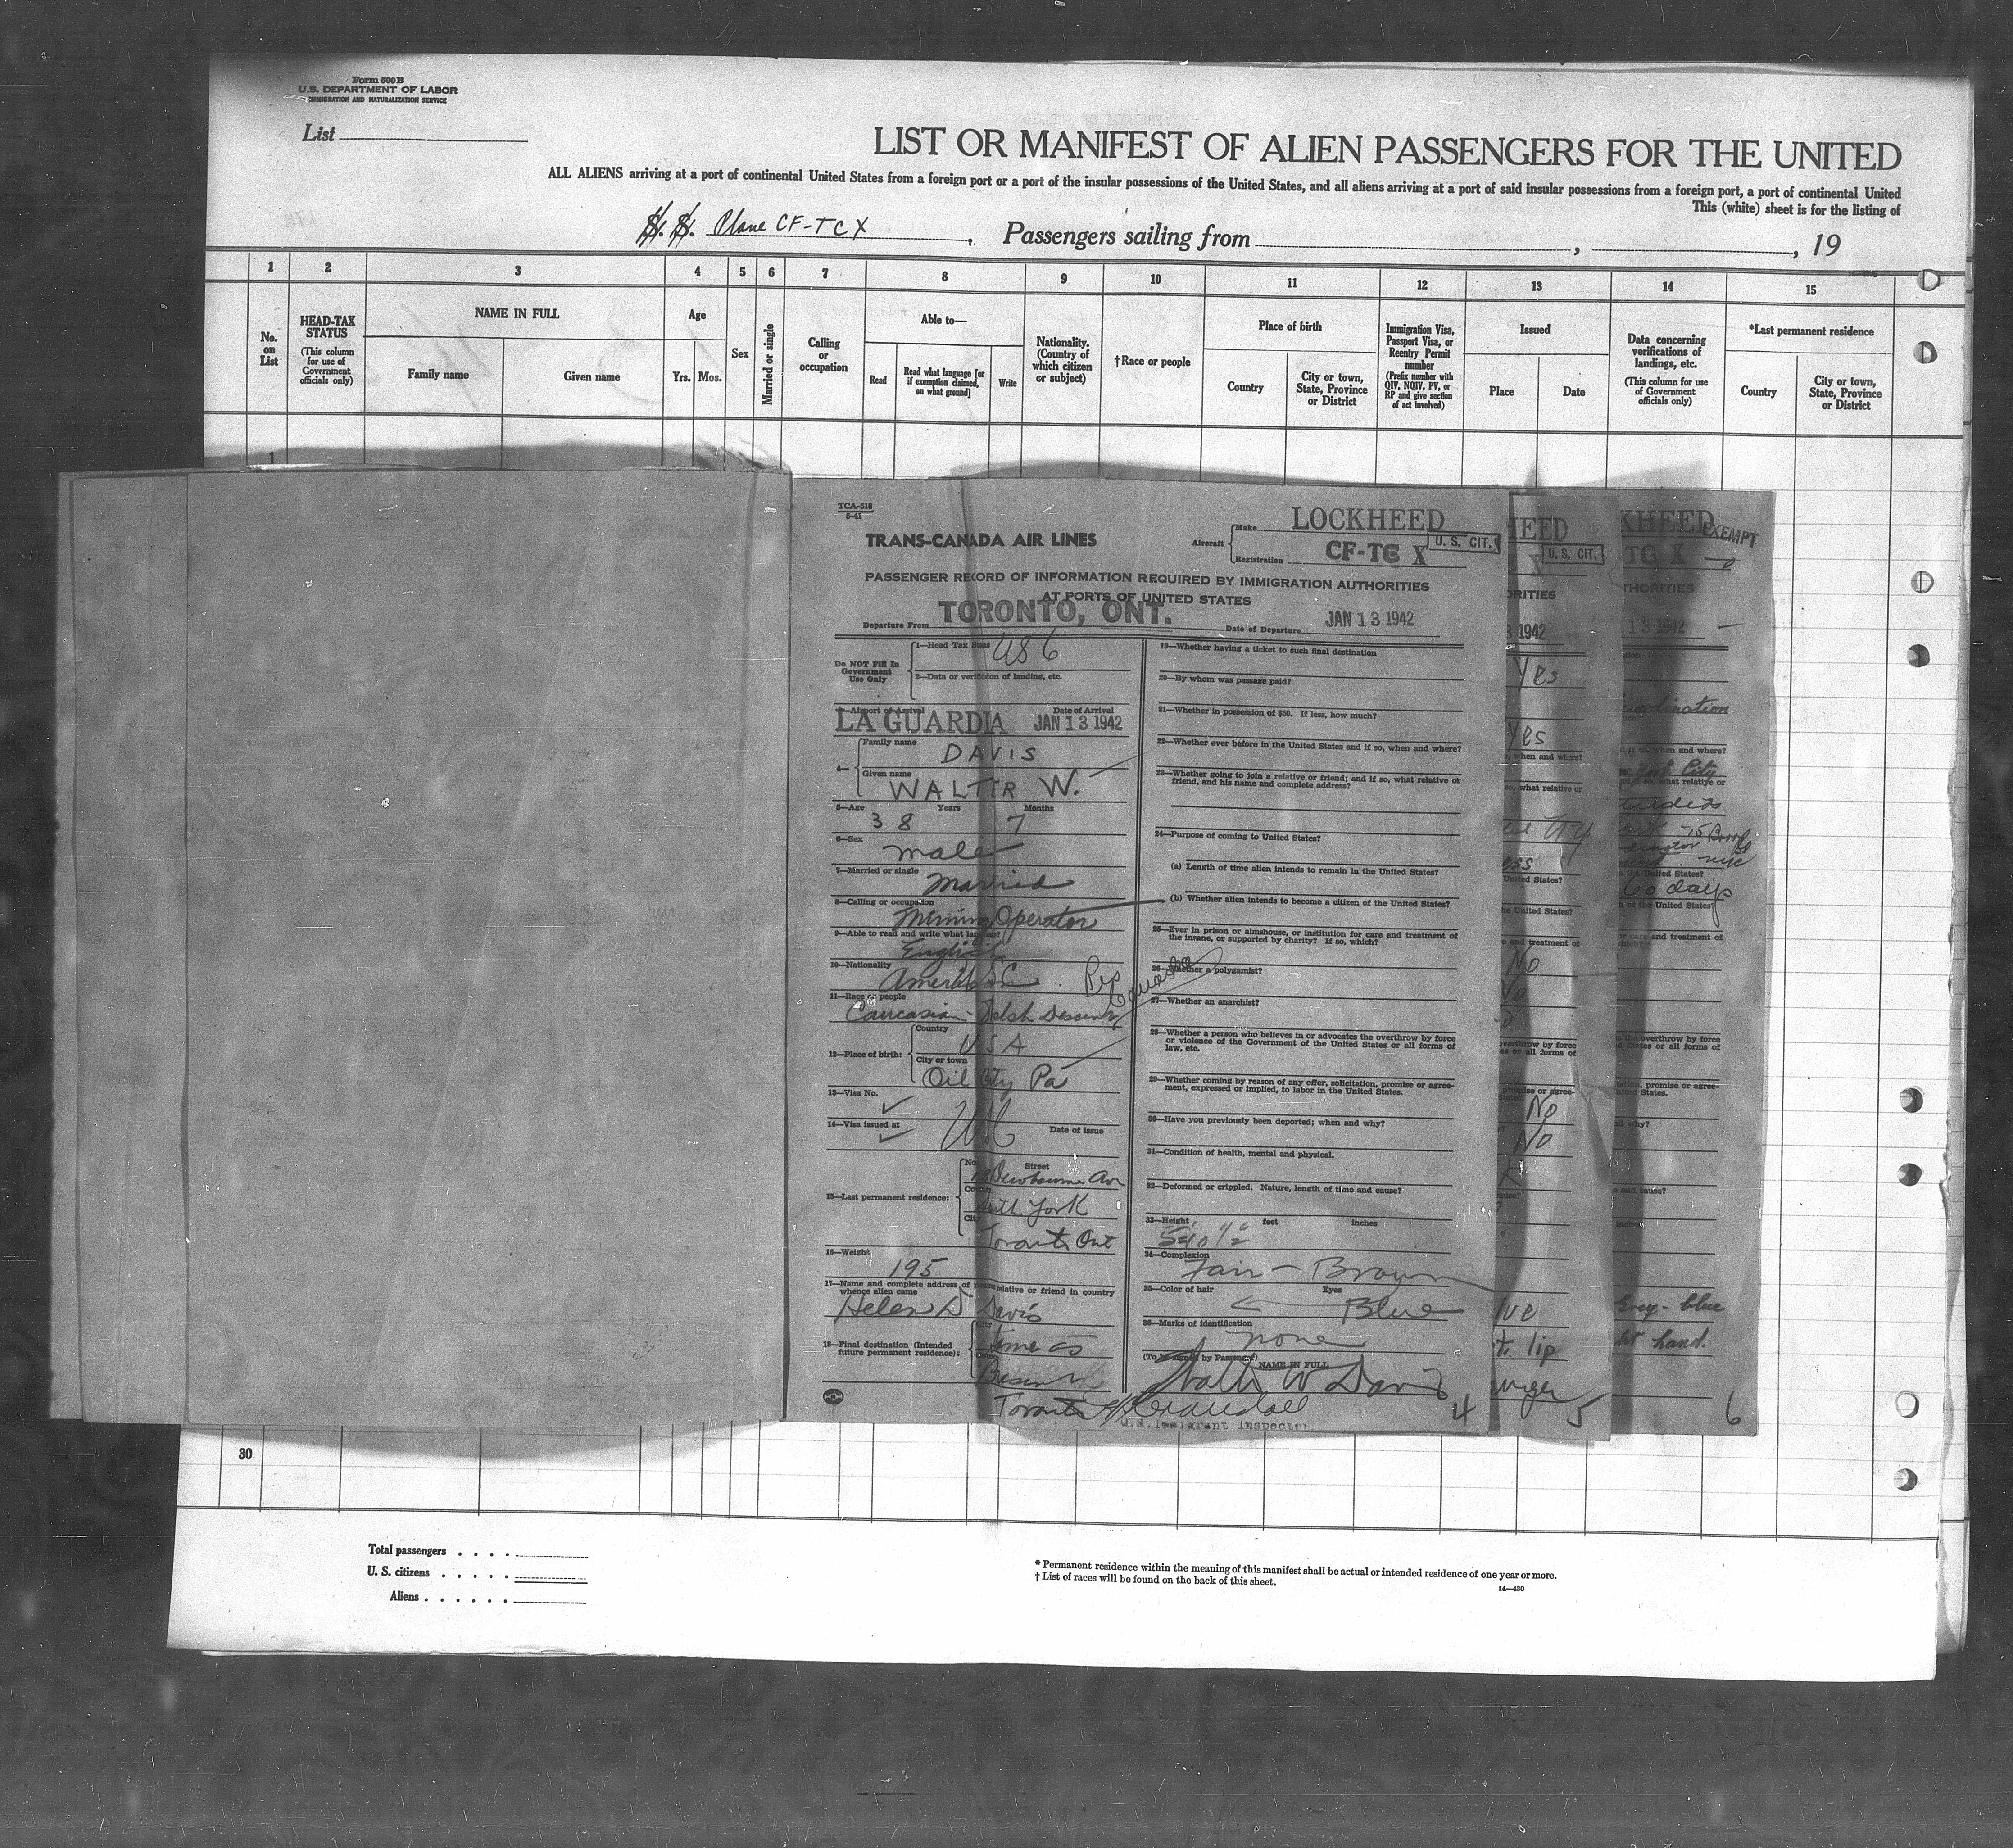 Form 500 B
U.S. DEPARTMENT OF LABOR
IMMIGRATION AND NATURALIZATION SERVICE
List
LIST OR MANIFEST OF ALIEN PASSENGERS FOR THE UNITED
ALL ALIENS arriving at a port of continental United States from a foreign port or a port of the insular possessions of the United States, and all aliens arriving at a port of said insular possessions from a foreign port, a port of continental United
This (white) sheet is for the listing of
S. S. Plane CF-TCX, Passengers sailing from , , 19
1 2 3 4 5 6 7 8 9 10 11 12 13 14 15
No. on List
HEAD-TAX STATUS
(This column for use of Government officials only)
NAME IN FULL
Family name
Given name
Age
Yrs. Mos.
Sex
Married or single
Calling or occupation
Able to—
Read
Read what language [or if exemption claimed, on what ground]
Write
Nationality. (Country of which citizen or subject)
†Race or people
Place of birth
Country
City or town, State, Province or District
Immigration Visa, Passport Visa, or Reentry Permit number
(Prefix number with QIV, NQIV, PV, or RP and give section of act involved)
Issued
Place
Date
Data concerning verifications of landings, etc.
(This column for use of Government officials only)
*Last permanent residence
Country
City or town, State, Province or District
1
TCA-518
5-41
TRANS-CANADA AIR LINES
Aircraft
Make LOCKHEED
Registration CF-TC X
U. S. CIT.
PASSENGER RECORD OF INFORMATION REQUIRED BY IMMIGRATION AUTHORITIES
AT PORTS OF UNITED STATES
Departure From TORONTO, ONT.
Date of Departure JAN 13 1942
Do NOT Fill In
Government
Use Only
1—Head Tax Status
2—Data or verification of landing, etc.
3—Airport of Arrival LA GUARDIA
Date of Arrival JAN 13 1942
4—
Family name DAVIS
Given name WALTER W.
5—Age 38 Years 7 Months
6—Sex male
7—Married or single Married
8—Calling or occupation Mining Operator
9—Able to read and write what language? English
10—Nationality American
11—Race or people Caucasian - Welsh Descent
12—Place of birth:
Country USA
City or town Oil City Pa
13—Visa No.
14—Visa issued at
Date of issue
15—Last permanent residence:
No. Street
County York
City Toronto Ont
16—Weight 195
17—Name and complete address of nearest relative or friend in country
whence alien came
Helen D Davis
18—Final destination (Intended
future permanent residence):
City Same as
Toronto
19—Whether having a ticket to such final destination
20—By whom was passage paid?
21—Whether in possession of $50. If less, how much?
22—Whether ever before in the United States and if so, when and where?
23—Whether going to join a relative or friend; and if so, what relative or
friend, and his name and complete address?
24—Purpose of coming to United States?
(a) Length of time alien intends to remain in the United States?
(b) Whether alien intends to become a citizen of the United States?
25—Ever in prison or almshouse, or institution for care and treatment of
the insane, or supported by charity? If so, which?
26—Whether a polygamist?
27—Whether an anarchist?
28—Whether a person who believes in or advocates the overthrow by force
or violence of the Government of the United States or all forms of
law, etc.
29—Whether coming by reason of any offer, solicitation, promise or agree-
ment, expressed or implied, to labor in the United States.
30—Have you previously been deported; when and why?
31—Condition of health, mental and physical.
32—Deformed or crippled. Nature, length of time and cause?
33—Height feet inches
34—Complexion Fair - Brown
35—Color of hair Eyes Blue
36—Marks of identification none
(To be signed by Passenger) NAME IN FULL
Walter W Davis
U.S. Immigrant Inspector
4
HEED
U. S. CIT.
X
ORITIES
3 1942
Yes
Yes
, when and where?
so, what relative or
United States?
the United States?
e and treatment of
No
No
overthrow by force
es or all forms of
promise or agree-
No
No
t. lip
5
KHEED
EXEMPT
TC X
THORITIES
13 1942
if so, when and where?
York City
what relative or
60 days
the United States?
or care and treatment of
the overthrow by force
d States or all forms of
promise or agree-
United States.
d why?
e and cause?
inches
Grey - blue
ht hand.
6
30
Total passengers
U. S. citizens
Aliens
* Permanent residence within the meaning of this manifest shall be actual or intended residence of one year or more.
† List of races will be found on the back of this sheet.
14—430